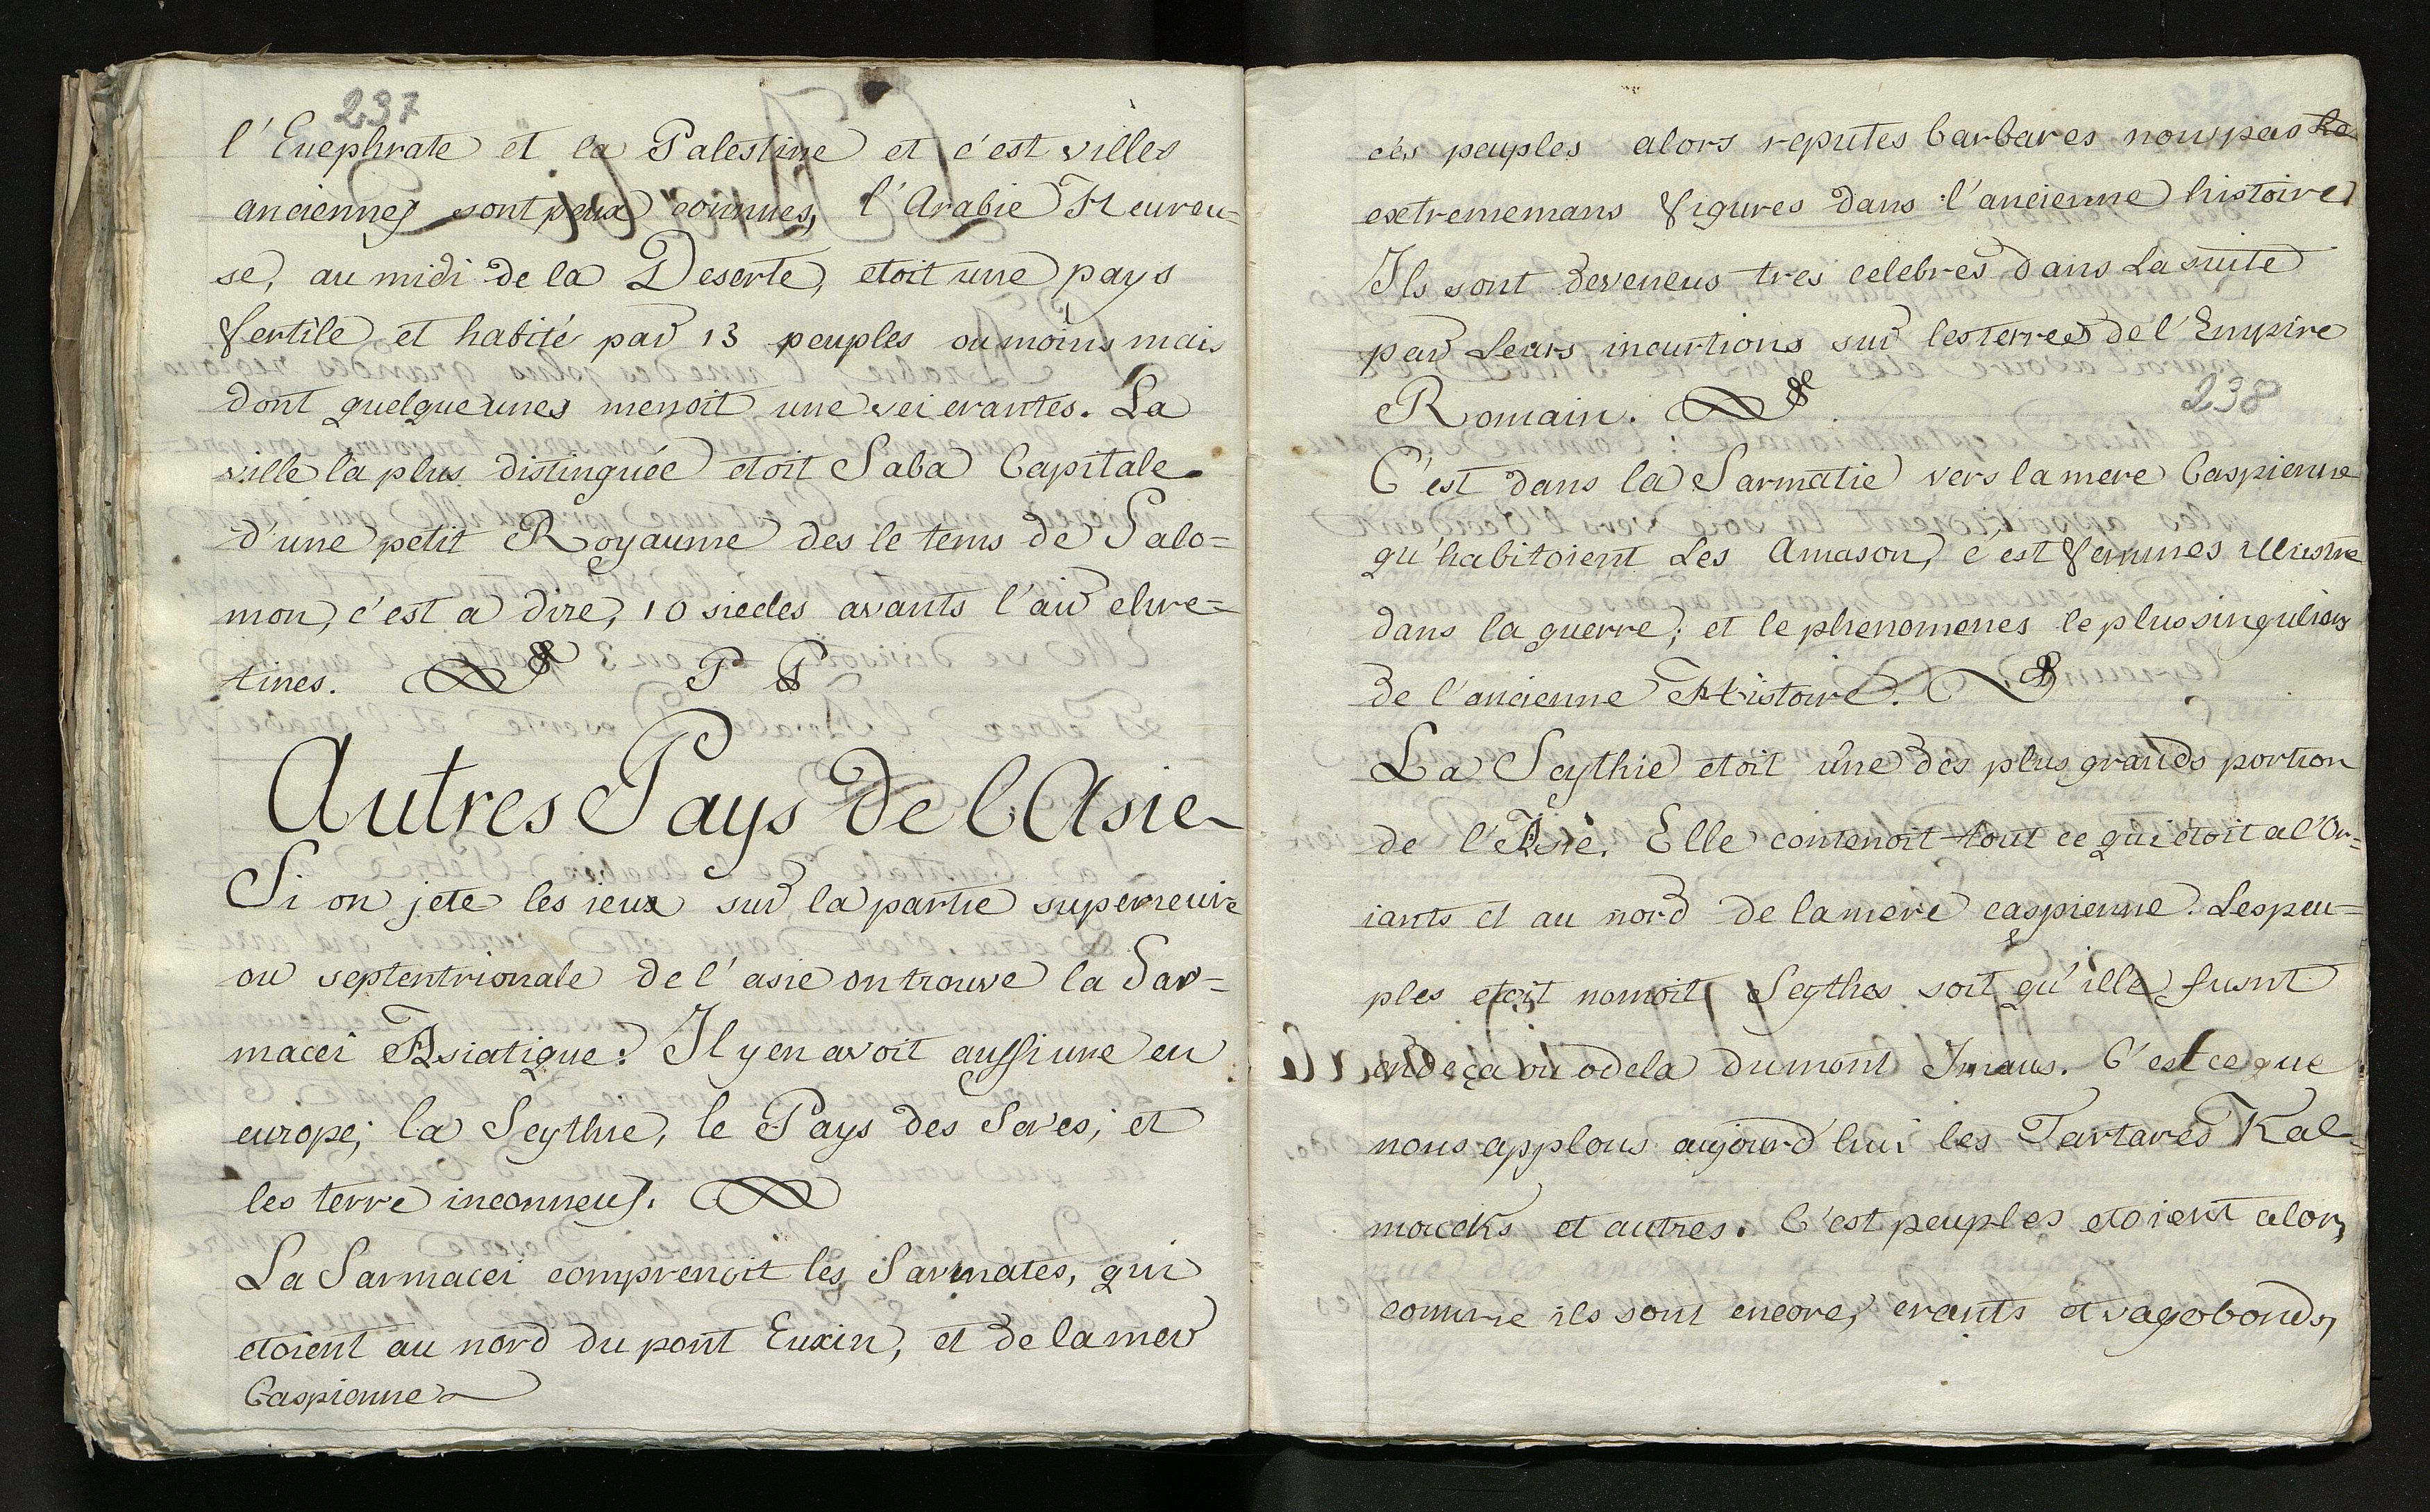 237
l'Euephrate et la Palestine et c'est villes
anciennes sont peux connues, l'Arabie Heureu=
se, au midi de la Deserte, etoit une pays
fertile et habité par 13 peuples ou moins mais
dont quelqueunes menoit une vei erantes. La
ville la plus distinguée etoit Saba Capitale
d'une petit Royaume des le tems de Salo=
mon, c'est a dire, 10 siecles avants l'air chre=
tines.
Autres Pays de l Asie
Si on jete les ieux sur la partie superieuire
ou septentrionale de l'asie on trouve la Sar=
macei Asiatique. Il y en avoit aussi une en
europe; la Scythie, le Pays des Seres; et
les terre inconneus.
La Sarmacei comprenoit les Sarmates, qui
etoient au nord du pont Euxin, et de la mer
Caspienne
ces peuples alors reputes barbares nous pas
extrememans figures dans l'ancienne histoire
Ils sont deveneus tres celebres dans la suite
par Leurs incurtions sur les terres de l'Empire
Romain.
238
C'est dans la Sarmatie vers la mere Caspienne
qu'habitoient Les Amason, c'est femmes illustre
dans la guerre; et le phenomenes le plus singuliers
de l'ancienne Histoire.
La Scythie etoit une des plus grands portion
de l'Asie. Elle contenoit tout ce qui etoit a l'Or=
iants et au nord de la mere caspienne. Les peu=
ples etoit nomoit Scythes soit qu'ille fusnt
endeça ou odela du mont Imaus. C'est ce que
nous applons aujourd'hui les Tartares Kal=
moucks et autres. C'est peuples etoient alors,
comme ils sont encore, erants et vagobonds,